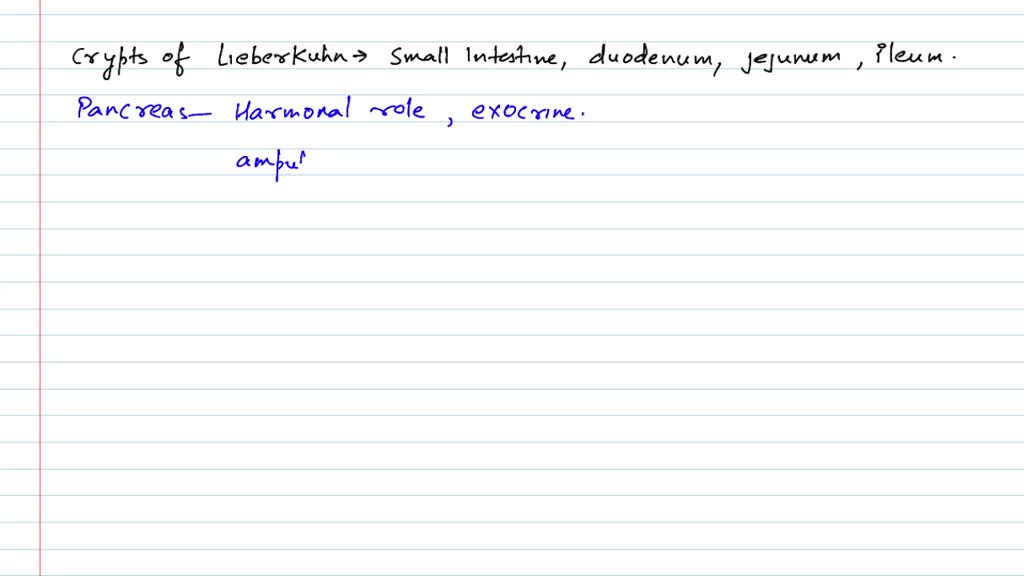 Crypts of Lieberkuhn → Small Intestine, duodenum, jejunum, ileum.
Pancreas — Harmonal role, exocrine.
ampul